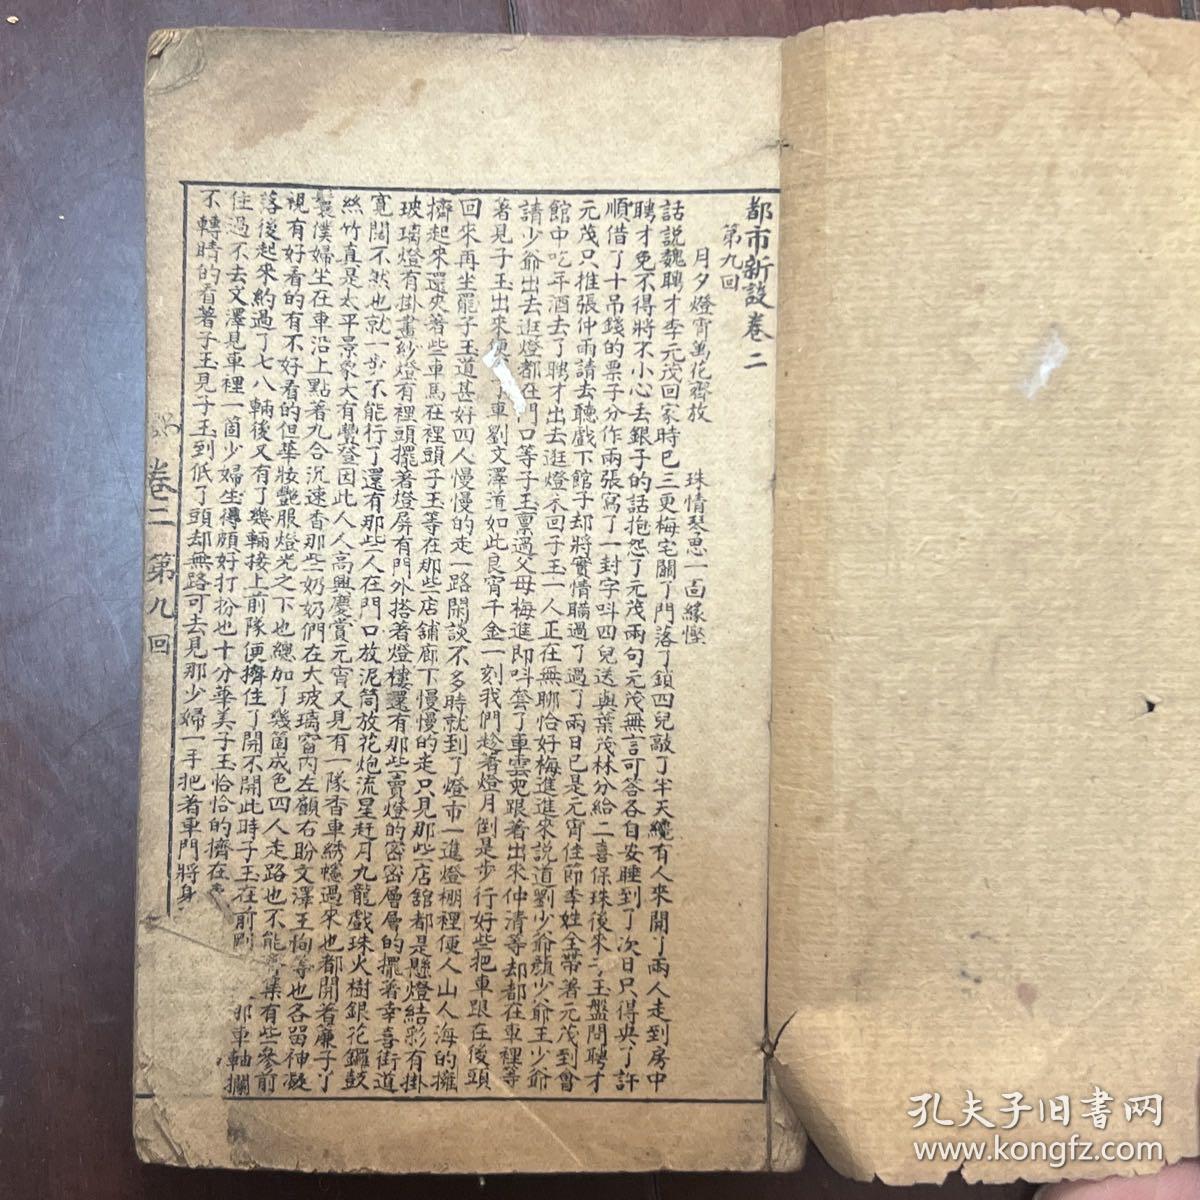 都市新談卷二
第九回
月夕燈宵萬花齊放　珠情琴思一面緣慳
話說魏聘才李元茂回家時已三更梅宅關了門落了鎖四兒敲了半天纔有人來開了兩人走到房中
聘才免不得將不小心丟銀子的話抱怨了元茂兩句元茂無言可答各自安睡到了次日只得央了許
順借了十吊錢的票子分作兩張寫了一封字呌四兒送與葉茂林分給二喜保珠後來子玉盤問聘才
元茂只推張仲雨請去聽戲下館子却將實情瞞過了過了兩日已是元宵佳節李姓全帶著元茂到會
館中吃年酒去了聘才出去逛燈不回子玉一人正在無聊恰好梅進進來說道劉少爺顏少爺王少爺
請少爺出去逛燈都在門口等子玉禀過父母梅進即呌套了車雲兒跟着出來仲清等却都在車裡等
著見子玉出來便 了車劉文澤道如此良宵千金一刻我們趁著燈月倒是步行好些把車跟在後頭
回來再坐罷子玉道甚好四人慢慢的走一路閑談不多時就到了燈市一進燈棚裡便人山人海的擁
擠起來還夾著些車馬在裡頭子玉等在那些店舖廊下慢慢的走只見那些店舘都是懸燈結彩有掛
玻璃燈有掛畫紗燈有裡頭擺著燈屏有門外搭著燈樓還有那些賣燈的密密層層的擺著幸喜街道
寬闊不然也就一步不能行了還有那些人在門口放泥筒放花炮流星赶月九龍戲珠火樹銀花鑼鼓
絲竹真是太平景象大有豐登因此人人高興慶賞元宵又見有一隊香車綉幰過來也都開著簾子丫
鬟僕婦坐在車沿上點著九合沉速香那些奶奶們在大玻璃窗內左顧右盼文澤王恂等也各留神凝
視有好看的有不好看的但華妝艷服燈光之下也總加了幾箇成色四人走路也不能 集有些參前
落後起來約過了七八輛後又有了幾輛接上前隊便擠住了開不開此時子玉在前剛 那車軸攔
住過不去文澤見車裡一箇少婦生得頗好打扮也十分華美子玉恰恰的擠在
不轉睛的看著子玉見子玉到低了頭却無路可去見那少婦一手把着車門將身
卷二　第九回
孔夫子旧書网
www.kongfz.com